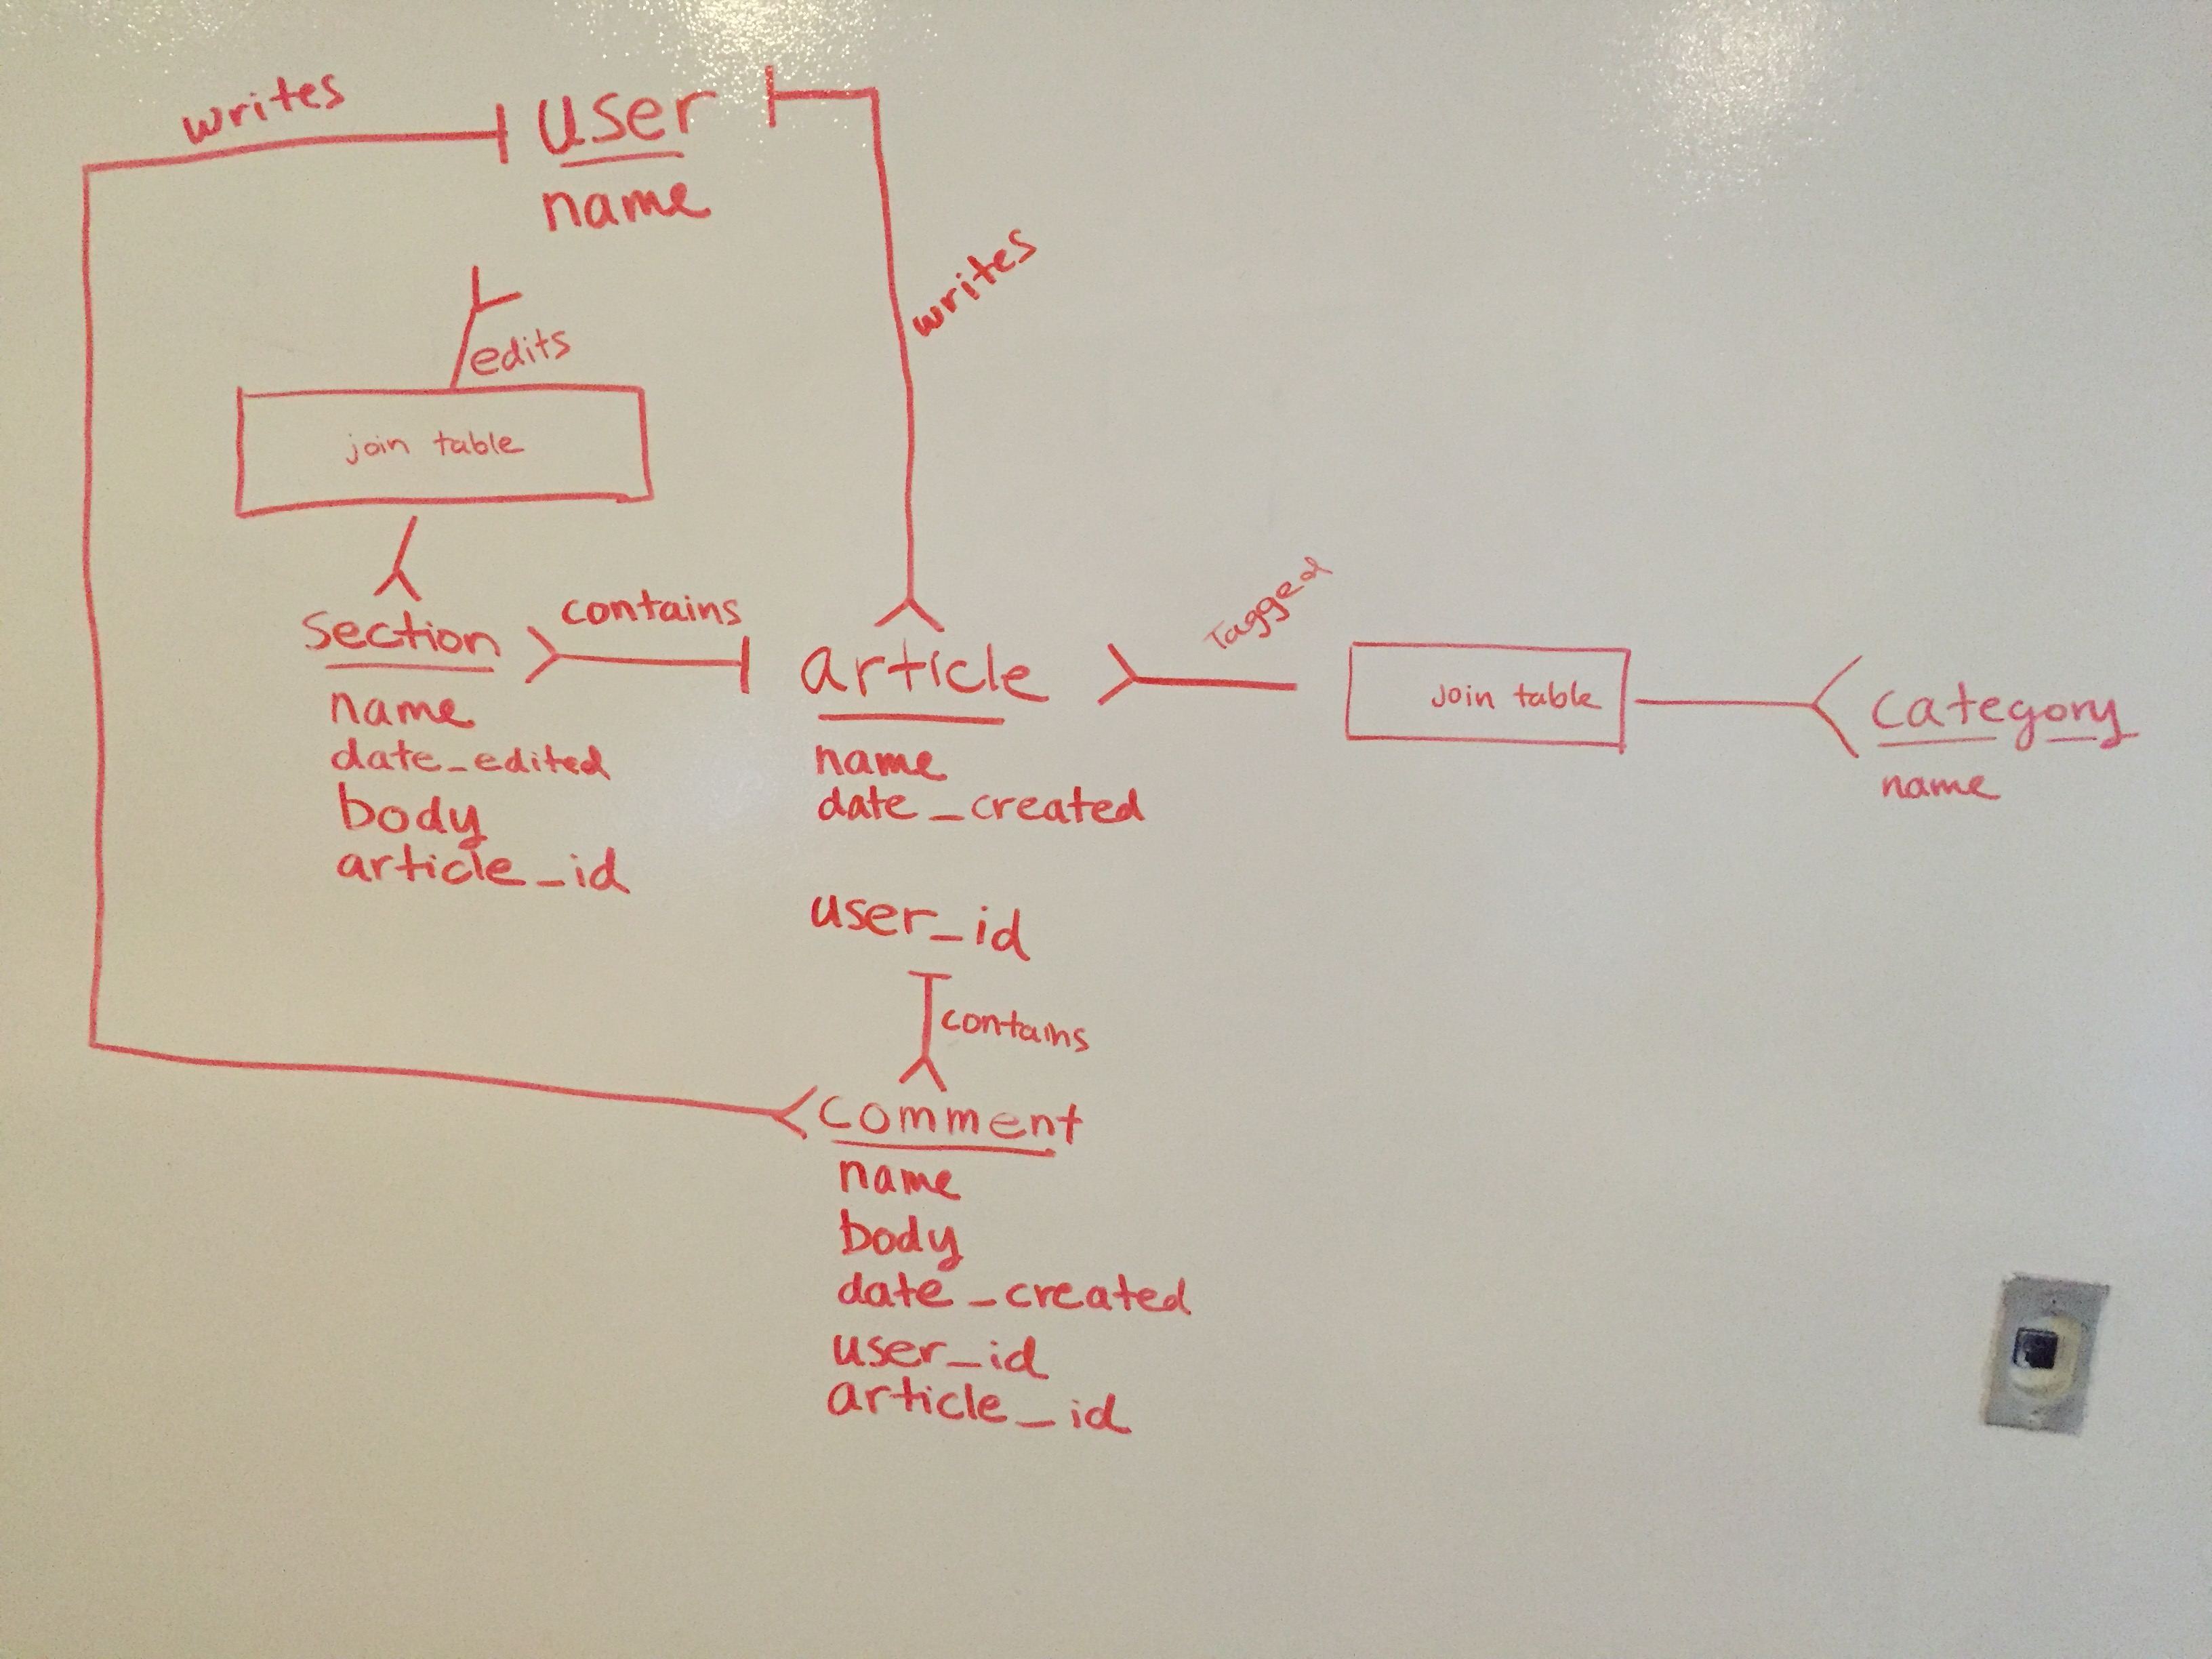 writes
user
name
writes
edits
join table
section
name
date_edited
body
article_id
contains
article
name
date_created
user_id
Tagged
join table
category
name
contains
comment
name
body
date_created
user_id
article_id